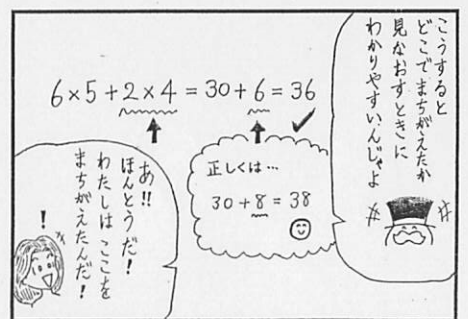 こうすると
どこでまちがえたか
見なおすときに
わかりやすいんじゃよ
6×5+2×4=30+6=36
正しくは…
30+8=38
あ!!
ほんとうだ!
わたしはここを
まちがえたんだ!
!